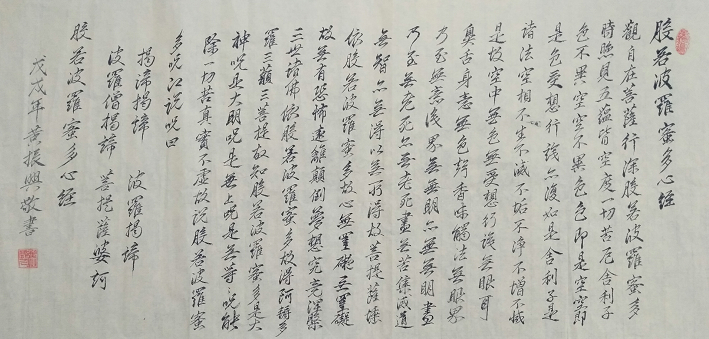 般若波羅蜜多心經
觀自在菩薩行深般若波羅蜜多
時照見五蘊皆空度一切苦厄舍利子
色不異空空不異色色即是空空即
是色受想行識亦復如是舍利子是
諸法空相不生不滅不垢不淨不增不減
是故空中無色無受想行識無眼耳
鼻舌身意無色聲香味觸法無眼界
乃至無意識界無無明亦無無明盡
乃至無老死亦無老死盡無苦集滅道
無智亦無得以無所得故菩提薩埵
依般若波羅蜜多故心無罣礙無罣礙
故無有恐怖遠離顛倒夢想究竟涅槃
三世諸佛依般若波羅蜜多故得阿耨多
羅三藐三菩提故知般若波羅蜜多是大
神咒是大明咒是無上咒是無等咒能
除一切苦真實不虛故說般若波羅蜜
多咒即說咒曰
揭諦揭諦 波羅揭諦
波羅僧揭諦 菩提薩婆訶
般若波羅蜜多心經
戊戌年黃振興敬書